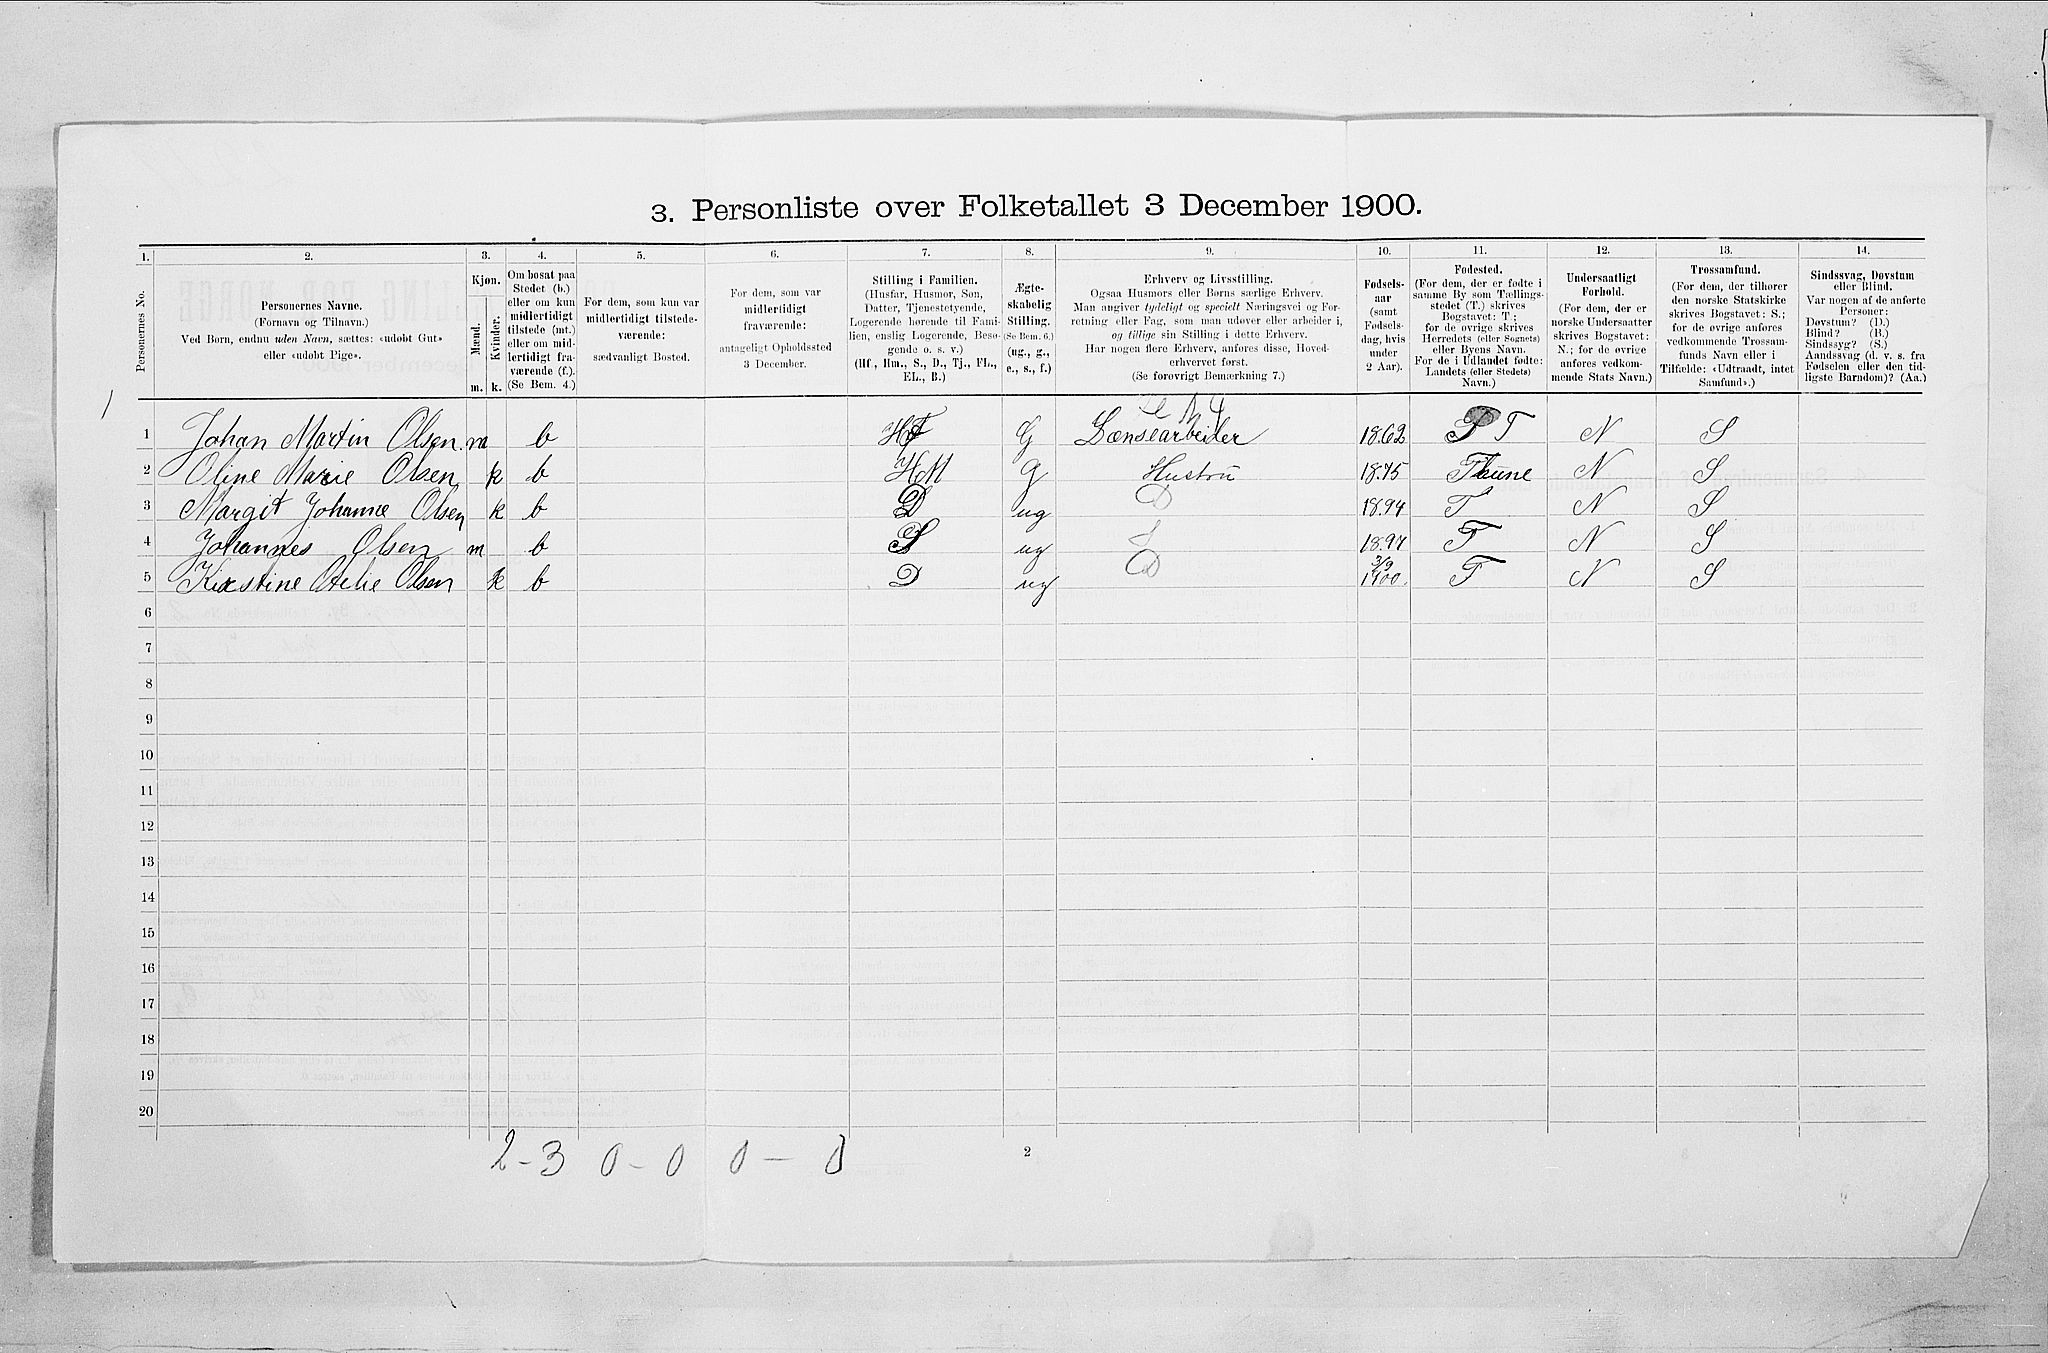 3. Personliste over Folketallet 3 December 1900.
1. 2. 3. 4. 5. 6. 7. 8. 9. 10. 11. 12. 13. 14.
Personernes No.
Personernes Navne.
(Fornavn og Tilnavn.)
Ved Børn, endnu uden Navn, sættes: «udøbt Gut»
eller «udøbt Pige».
Kjøn.
Mænd.
Kvinder.
m. k.
Om bosat paa
Stedet (b.)
eller om kun
midlertidigt
tilstede (mt.)
eller om mid-
lertidigt fra-
værende (f.).
(Se Bem. 4.)
For dem, som kun var
midlertidigt tilstede-
værende:
sædvanligt Bosted.
For dem, som var
midlertidigt
fraværende:
antageligt Opholdssted
3 December.
Stilling i Familien.
(Husfar, Husmor, Søn,
Datter, Tjenestetyende,
Logerende hørende til Fami-
lien, enslig Logerende, Besø-
gende o. s. v.)
(Hf., Hm., S., D., Tj., FL.,
EL., B.)
Ægte-
skabelig
Stilling.
(Se Bem. 6.)
(ug., g.,
e., s., f.)
Erhverv og Livsstilling.
Ogsaa Husmors eller Børns særlige Erhverv.
Man angiver tydeligt og specielt Næringsvei og For-
retning eller Fag, som man udøver eller arbeider i,
og tillige sin Stilling i dette Erhverv.
Har nogen flere Erhverv, anføres disse, Hoved-
erhvervet først.
(Se forøvrigt Bemærkning 7.)
Fødsels-
aar
(samt
Fødsels-
dag, hvis
under
2 Aar).
Fødested.
(For dem, der er fødte i
samme By som Tællings-
stedet (T.) skrives
Bogstavet: T;
for de øvrige skrives
Herredets (eller Sognets)
eller Byens Navn.
For de i Udlandet fødte:
Landets (eller Stedets)
Navn.)
Undersaatligt
Forhold.
(For dem, der er
norske Undersaatter
skrives Bogstavet:
N.; for de øvrige
anføres vedkom-
mende Stats Navn.)
Trossamfund.
(For dem, der tilhører
den norske Statskirke
skrives Bogstavet: S.;
for de øvrige anføres
vedkommende Trossam-
funds Navn eller i
Tilfælde: «Udtraadt, intet
Samfund».)
Sindssvag, Døvstum
eller Blind.
Var nogen af de anførte
Personer:
Døvstum? (D.)
Blind? (B.)
Sindssyg? (S.)
Aandssvag (d. v. s. fra
Fødselen eller den tid-
ligste Barndom)? (Aa.)
1 Johan Martin Olsen m b Hf G Lænsearbeider 1862 T N S
2 Oline Marie Olsen k b HM g Hustru 1875 Thune N S
3 Margit Johanne Olsen k b D ug D 1894 T N S
4 Johannes Olsen m b S ug S 1897 T N S
5 Kirstine Otelie Olsen k b D ug D 3/9 1900. T N S
6
7
8
9
10
11
12
13
14
15
16
17
18
19
20
2-3 0-0 0-0
2